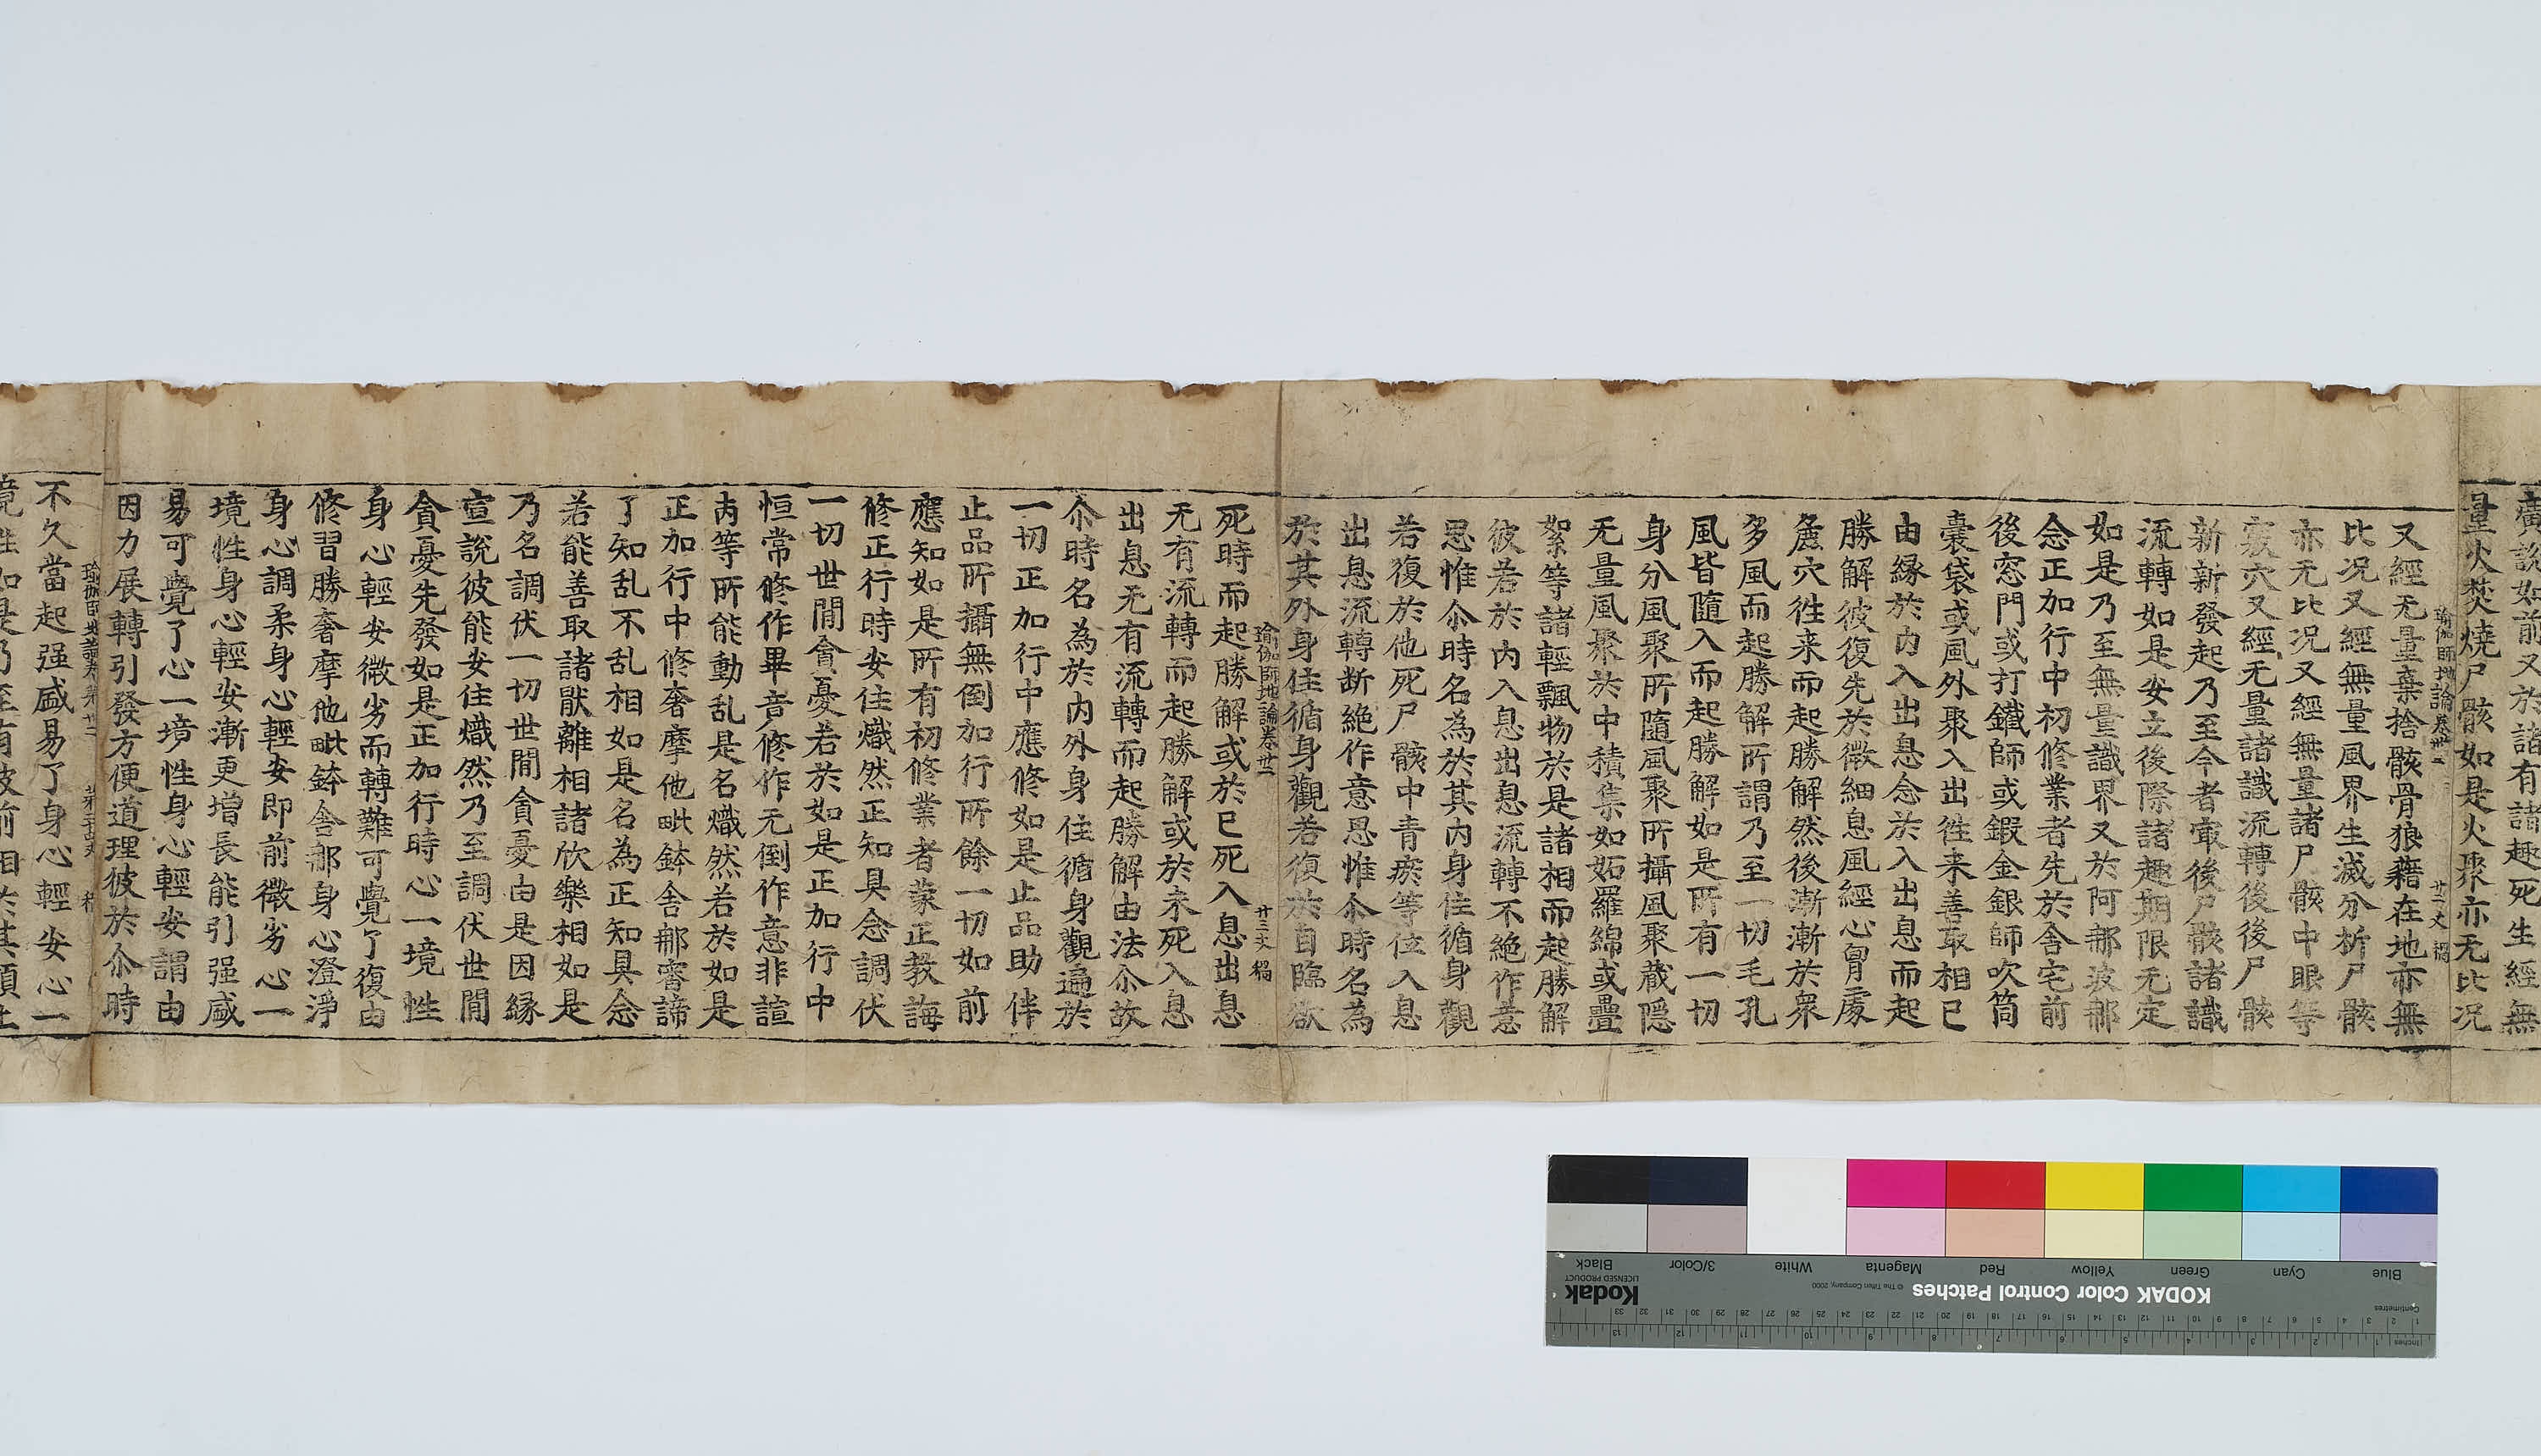 廣說如前又於諸有諸趣死生經無
量火焚燒尸骸如是火聚亦无比況
瑜伽師地論卷卅二 廿二丈 稱
又經无量棄捨骸骨狼藉在地亦無
比況又經無量風界生滅分析尸骸
亦无比况又經無量諸尸骸中眼等
竅穴又經无量諸識流轉後後尸骸
新新發起乃至今者㝡後尸骸諸識
流轉如是安立後際諸趣期限无定
如是乃至無量識界又於阿那波那
念正加行中初修業者先於舍宅前
後窓門或打鐵師或鍜金銀師吹筒
橐袋或風外聚入出徃来善取相已
由縁於内入出息念於入出息而起
勝解彼復先於微細息風經心胷處
麁穴徃来而起勝解然後漸漸於衆
多風而起勝解所謂乃至一切毛孔
風皆隨入而起勝解如是所有一切
身分風聚所隨風聚所攝風聚蔵隱
无量風聚於中積集如妬羅綿或疊
絮等諸輕飄物於是諸相而起勝解
彼若於内入息出息流轉不絶作意
思惟尒時名為於其内身住循身觀
若復於他死尸骸中青瘀等位入息
出息流轉断絶作意思惟尒時名為
於其外身住循身觀若復於自臨欲
瑜伽師地論卷卅二 廿三丈 稱
死時而起勝解或於已死入息出息
无有流轉而起勝解或於未死入息
出息无有流轉而起勝解由法尒故
尒時名為於内外身住循身觀遍於
一切正加行中應修如是止品助伴
止品所攝無倒加行所餘一切如前
應知如是所有初修業者蒙正教誨
修正行時安住熾然正知具念調伏
一切世間貪憂若於如是正加行中
恒常修作畢竟修作无倒作意非諠
丙等所能動乱是名熾然若於如是
正加行中修奢摩他毗鉢舍那審諦
了知乱不乱相如是名為正知具念
若能善取諸猒離相諸欣樂相如是
乃名調伏一切世間貪憂由是因縁
宣說彼能安住熾然乃至調伏世間
貪憂先發如是正加行時心一境性
身心輕安微劣而轉難可覺了復由
修習勝奢摩他毗鉢舍那身心澄淨
身心調柔身心輕安即前微劣心一
境性身心輕安漸更増長能引强盛
易可覺了心一境性身心輕安謂由
因力展轉引發方便道理彼於尒時
瑜伽師地論卷卅二
不久當起强盛易了身心輕安心一
境性如是乃至有彼前相於其頂上